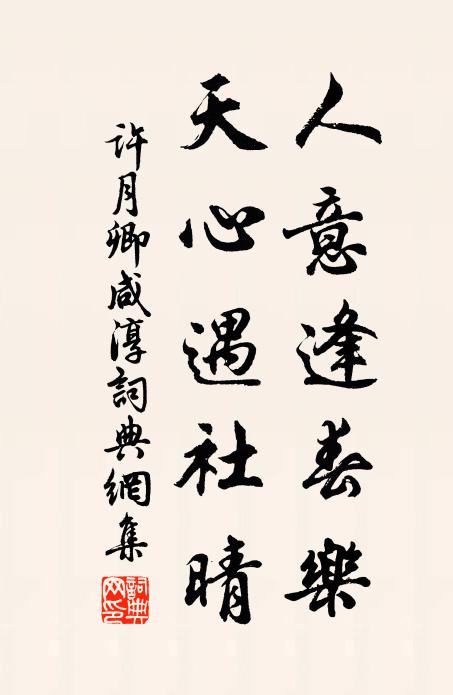 人意逢春樂
天心遇社晴
許月卿咸淳詞典網集
詞典網印